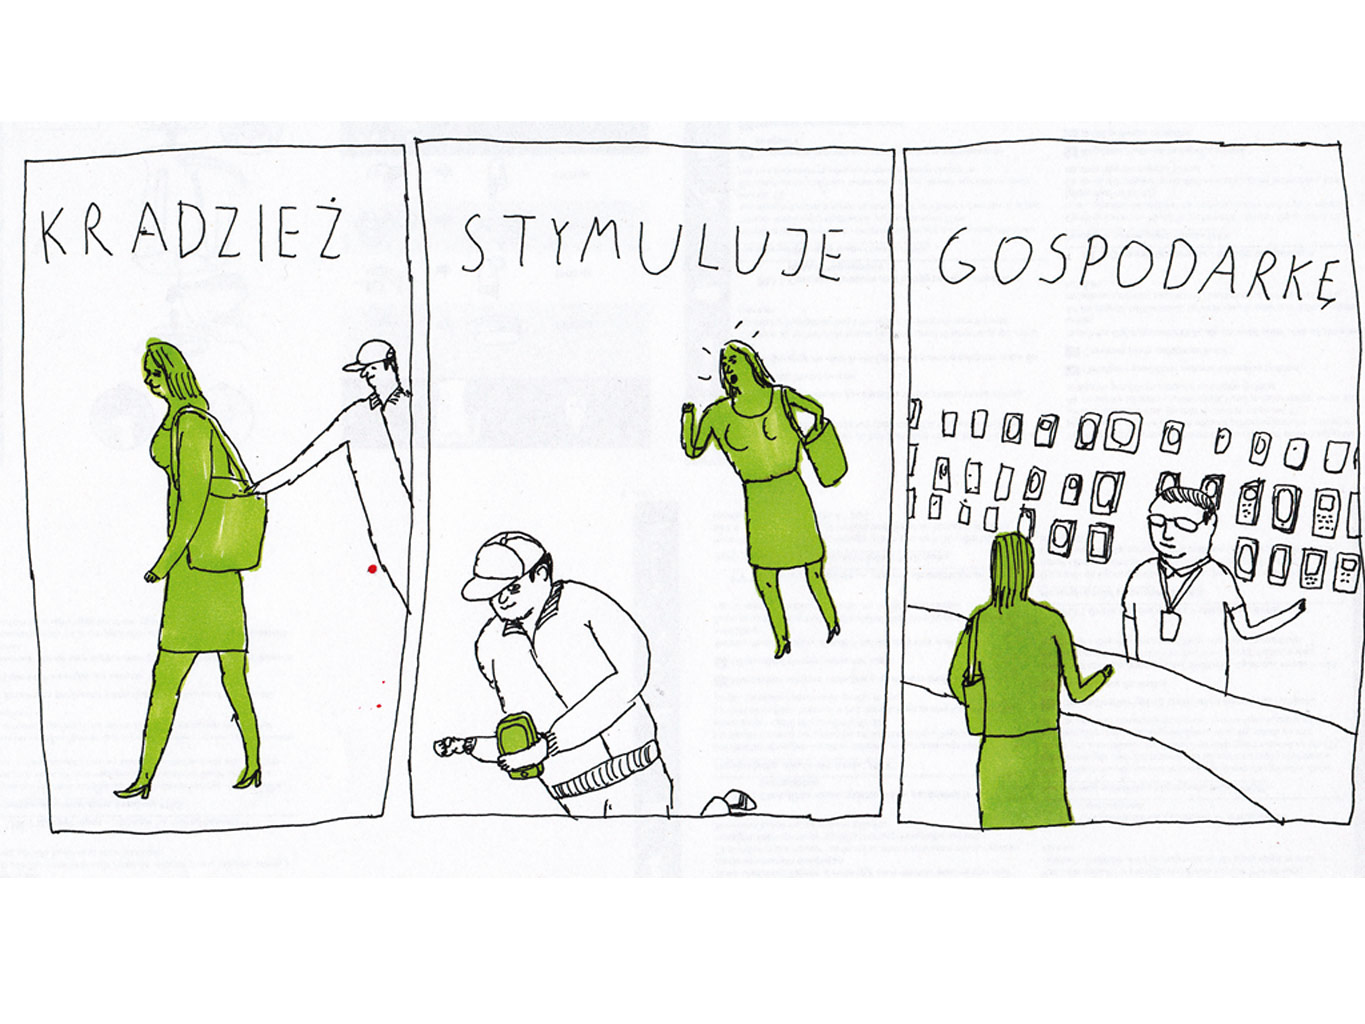 KRADZIEŻ
STYMULUJE
GOSPODARKĘ